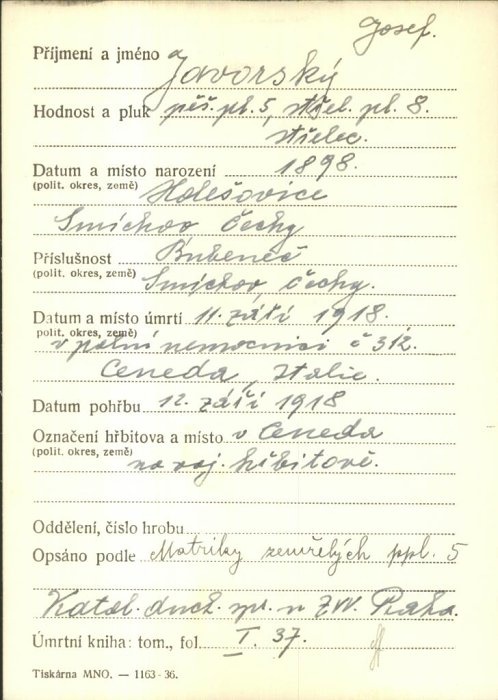 Josef.
Příjmení a jméno Javorský
Hodnost a pluk pěš. pl. 5, střel. pl. 8.
střelec.
Datum a místo narození 1898.
(polit. okres, země) Holešovice
Smíchov Čechy
Příslušnost Bubeneč
(polit. okres, země) Smíchov, Čechy.
Datum a místo úmrtí 11. září 1918.
polit. okres, země)
v polní nemocnici č 312.
Ceneda, Italie.
Datum pohřbu 12. září 1918
Označení hřbitova a místo v Ceneda
(polit. okres, země) na voj. hřbitově.
Oddělení, číslo hrobu
Opsáno podle Matriky zemřelých ppl. 5
Katol. duch. spr. u ZVV. Praha.
Úmrtní kniha: tom., fol. I. 37.
Tiskárna MNO. — 1163-36.